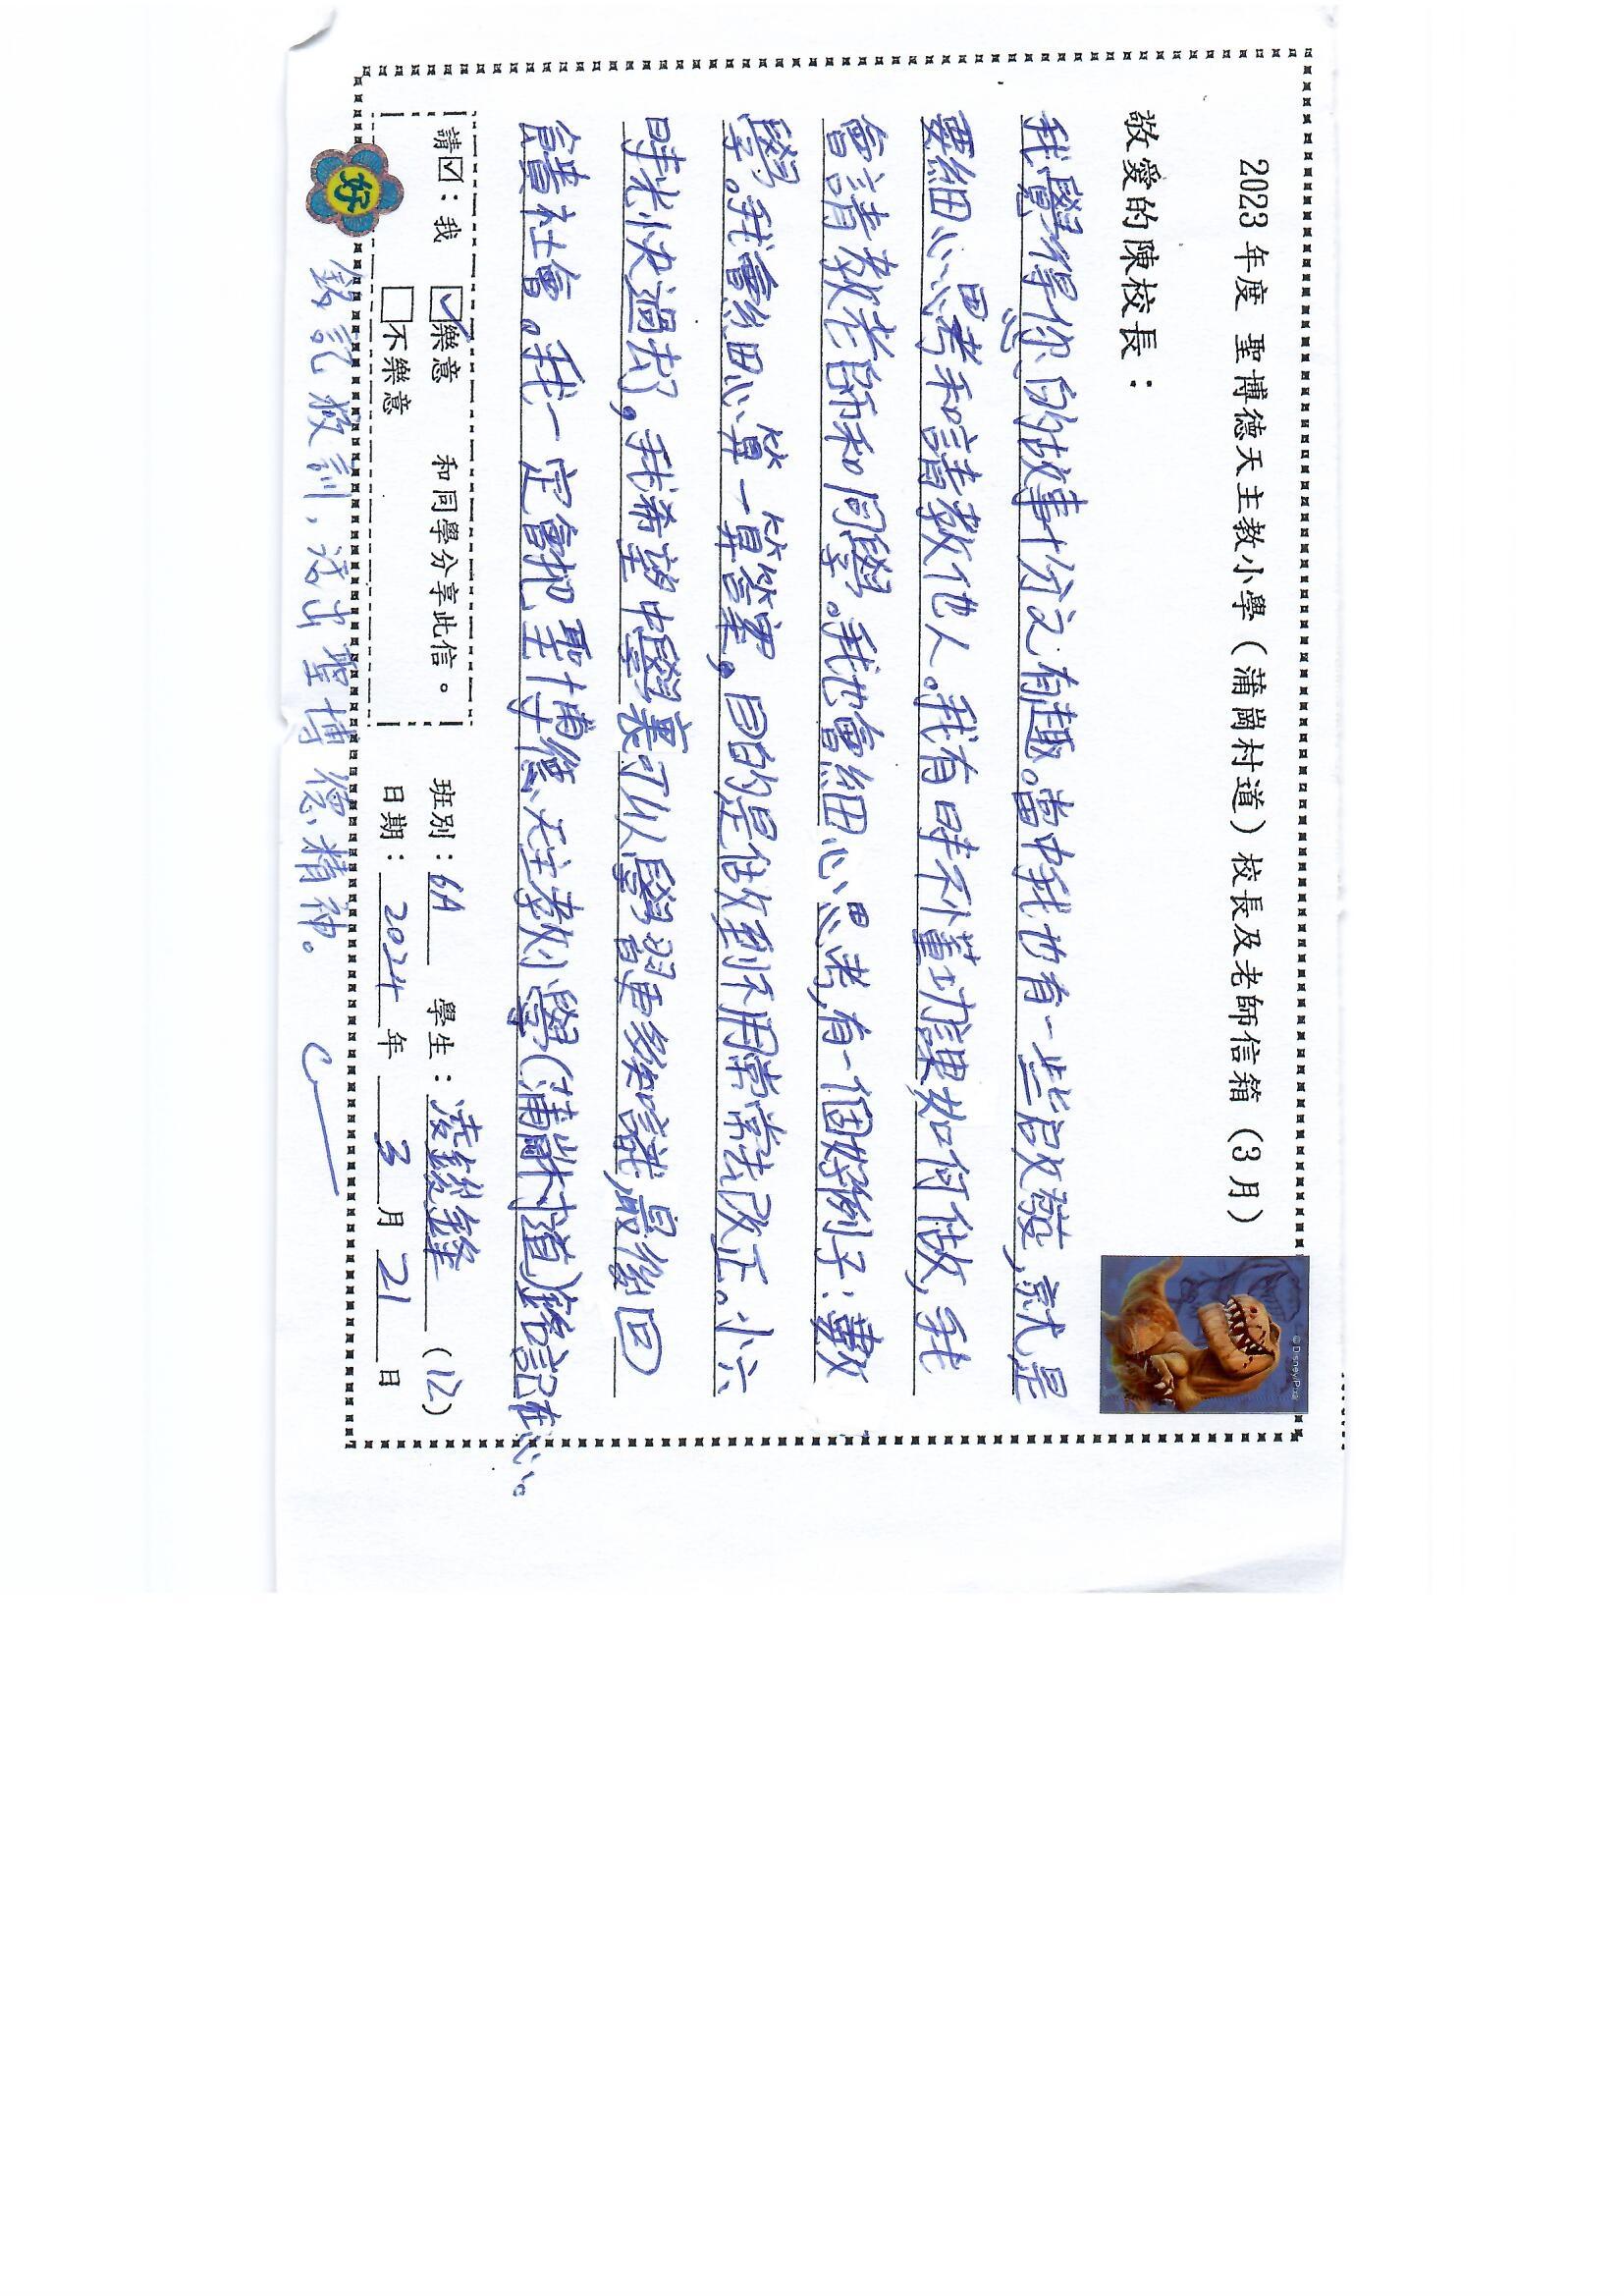 2023 年度 聖博德天主教小學（蒲崗村道）校長及老師信箱（3 月）
© Disney/Pixar
敬愛的陳校長：
我覺得你的故事十分之有趣。當中我也有一些啟發，就是
要細心思考和請教他人。我有時不懂功課如何做，我
會請教老師和同學。我也會細心思考，有一個好例子：數
學。我會細心算一算答案，目的是做到不用常常去改正。小六
時光快過去了，我希望中學裏可以學習更多知識，最後回
饋社會。我一定會把聖博德天主教小學(蒲崗村道)銘記在心。
請☑：我 ☑樂意 和同學分享此信。
□不樂意
班別：6A 學生：凌鋒 (12)
日期：2024 年 3 月 21 日
好
銘記校訓，活出聖博德精神。